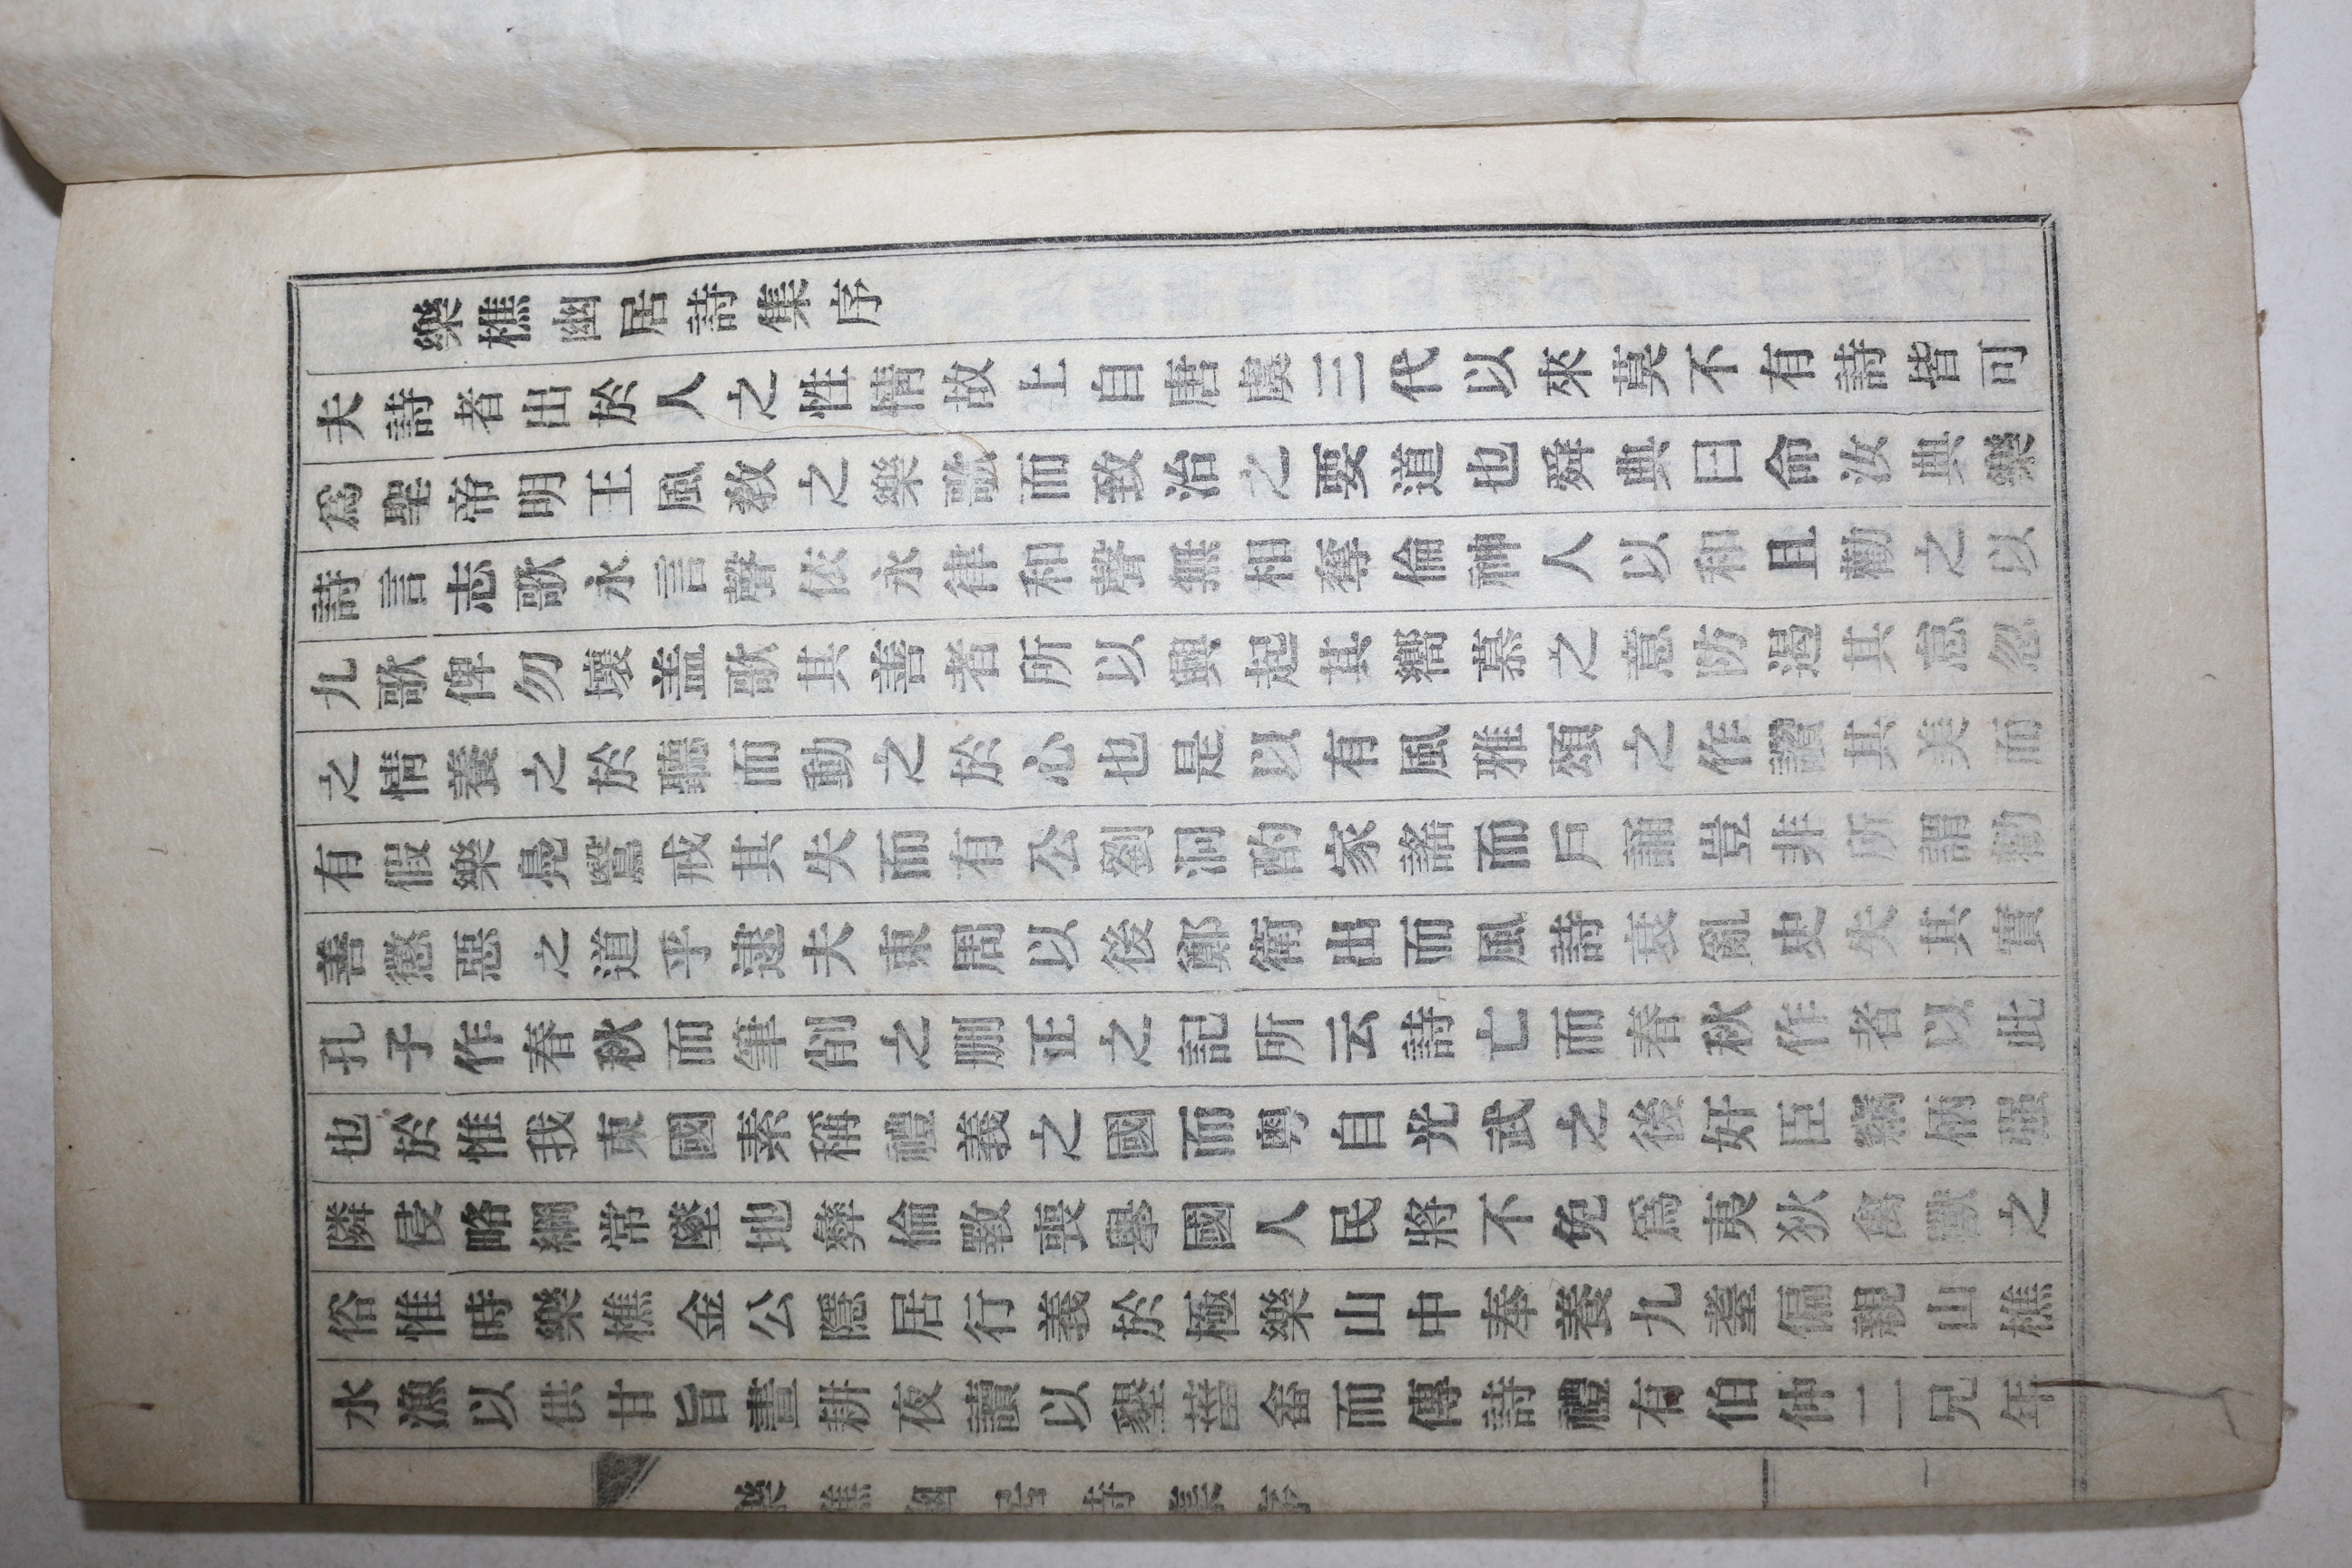 樂樵幽居詩集序
夫詩者出於人之性情故上自唐虞三代以來莫不有詩皆可
爲聖帝明王風敎之樂歌而致治之要道也舜典曰命汝典樂
詩言志歌永言聲依永律和聲無相奪倫神人以和且勸之以
九歌俾勿壞盖歌其善者所以興起其嚮慕之意防遏其怠忽
之情養之於聽而動之於心也是以有風雅頌之作讚其美而
有假樂鳧鷖戒其失而有公劉泂酌家誻而戶誦豈非所謂勸
善懲惡之道乎逮夫東周以後鄭衛出而風詩衰亂史失其實
孔子作春秋而筆削之刪正之記所云詩亡而春秋作者以此
也於惟我東國素稱禮義之國而粤自光武之後奸臣竊柄强
隣侵略綱常墜地彝倫斁喪擧國人民將不免爲夷狄禽獸之
俗惟時樂樵金公隱居行義於極樂山中奉養九耋偏親山樵
水漁以供甘旨晝耕夜讀以墾菑畬而傳詩禮有伯仲二兄年
樂樵幽居詩集序 一